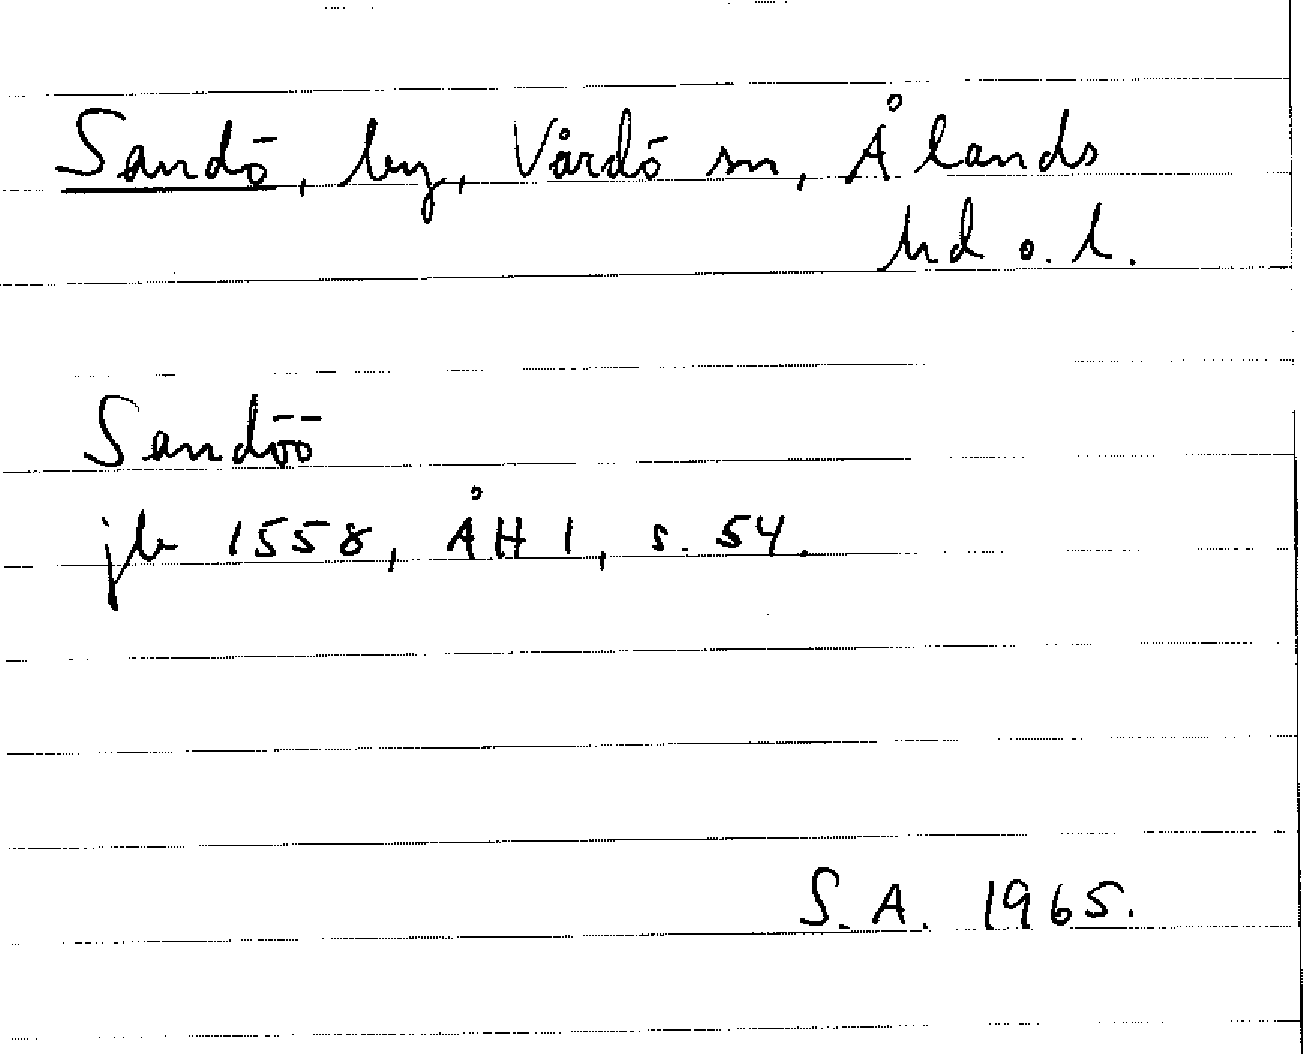 Sandö, by, Vårdö sn, Ålands
hd o. l.
Sandöö
jb 1558, ÅH 1, s. 54.
S.A. 1965.